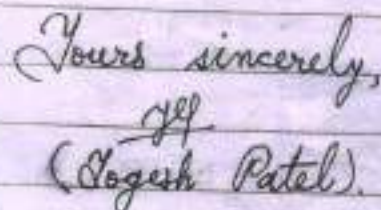 Yours sincerely,
yp
(Yogesh Patel).